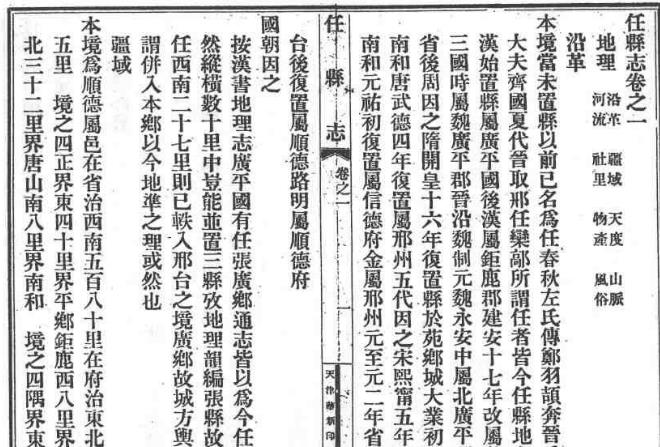 任縣志卷之一
地理 沿革 疆域 天度 山脈
河流 社里 物產 風俗
沿革
本境當未置縣以前已名為任春秋左氏傳鄭羽頡奔晉
大夫齊國夏代晉取邢任欒鄗所謂任者皆今任縣地
漢始置縣屬廣平國後漢屬鉅鹿郡建安十七年改屬
三國時屬魏廣平郡晉沿魏制元魏永安中屬北廣平
省後周因之隋開皇十六年復置縣於苑鄉城大業初
南和唐武德四年復置屬邢州五代因之宋熙甯五年
南和元祐初復置屬信德府金屬邢州元至元二年省
任縣志
卷之一
天津華新印
台後復置屬順德路明屬順德府
國朝因之
按漢書地理志廣平國有任張廣鄉通志皆以為今任
然縱橫數十里中豈能並置三縣攷地理韻編張縣故
任西南二十七里則已軼入邢台之境廣鄉故城方輿
謂併入本鄉以今地準之理或然也
疆域
本境為順德屬邑在省治西南五百八十里在府治東北
五里 境之四正界東四十里界平鄉鉅鹿西八里界
北三十二里界唐山南八里界南和 境之四隅界東